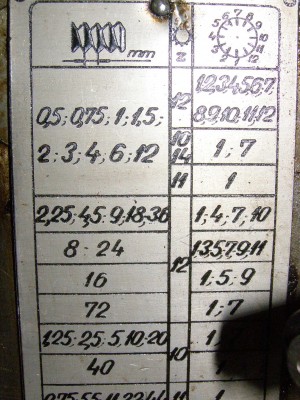 mm z 9 10 11 12 1
1,2,3,4,5,6,7,
12 8,9,10,11,12
0,5; 0,75; 1; 1,5;
2; 3; 4; 6; 12
10 14 1; 7
11 1
2,25; 4,5; 9; 18; 36 1; 4; 7; 10
8; 24 1,3,5,7,9,11
12
16 1; 5; 9
72 1; 7
1,25; 2,5; 5; 10; 20
10
40
11 1